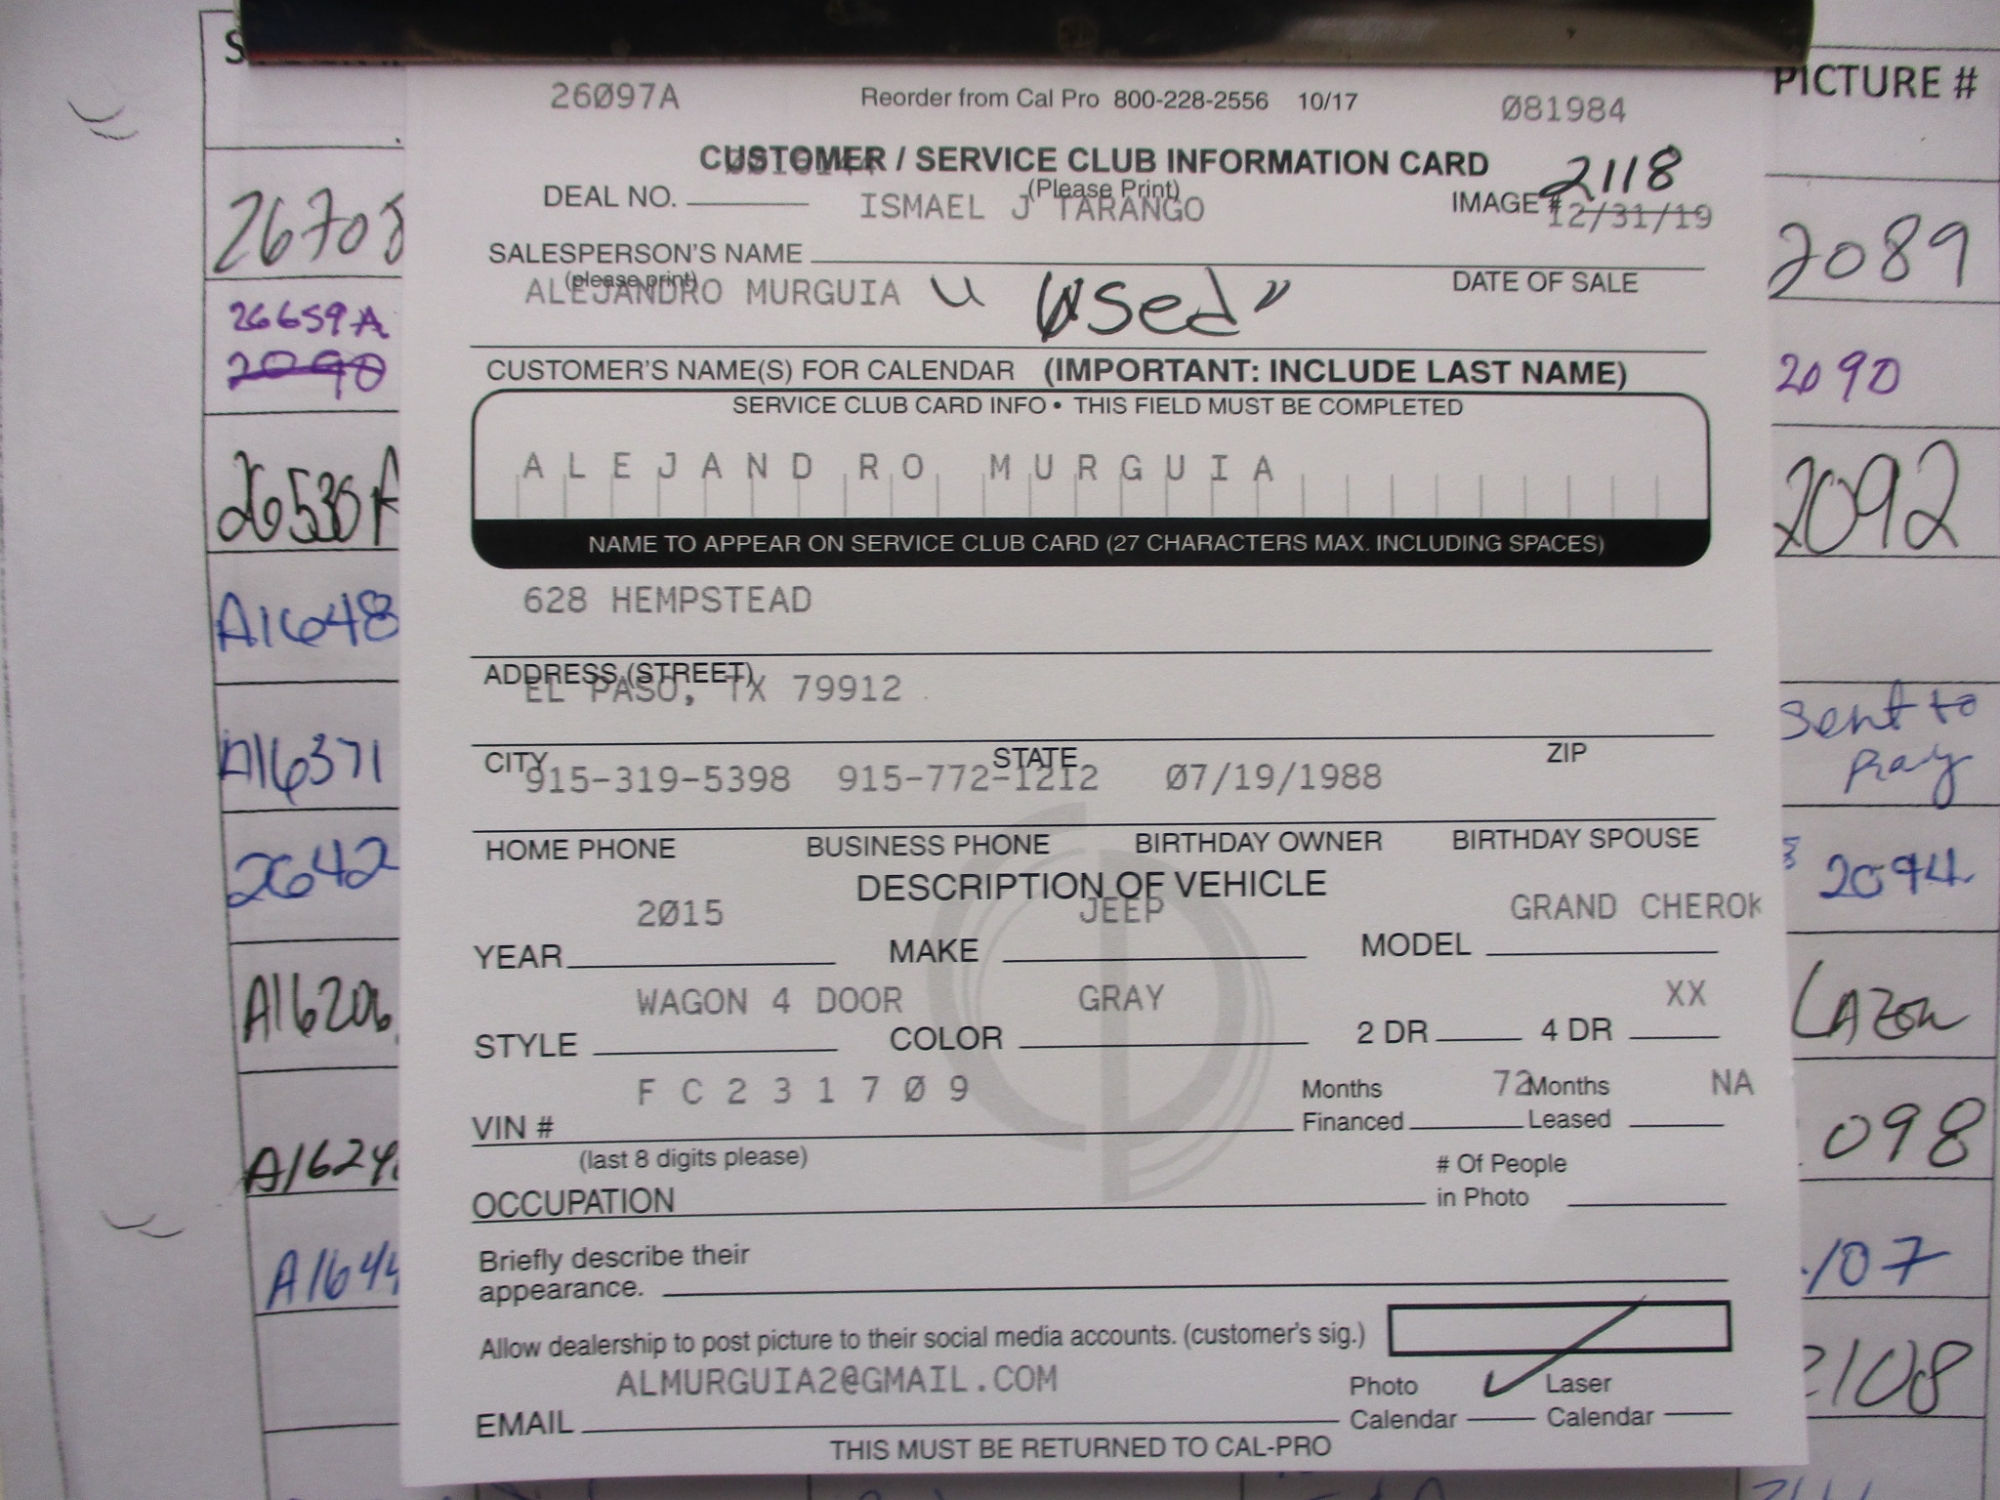 PICTURE #
26097A Reorder from Cal Pro 800-228-2556 10/17 081984
CUSTOMER / SERVICE CLUB INFORMATION CARD
(Please Print)
DEAL NO. ISMAEL J TARANGO IMAGE # 2118
12/31/19
SALESPERSON'S NAME
(please print) DATE OF SALE
ALEJANDRO MURGUIA "Used"
CUSTOMER'S NAME(S) FOR CALENDAR (IMPORTANT: INCLUDE LAST NAME)
SERVICE CLUB CARD INFO • THIS FIELD MUST BE COMPLETED
ALEJANDRO MURGUIA
NAME TO APPEAR ON SERVICE CLUB CARD (27 CHARACTERS MAX. INCLUDING SPACES)
628 HEMPSTEAD
ADDRESS (STREET)
EL PASO, TX 79912
CITY STATE ZIP
915-319-5398 915-772-1212 07/19/1988
HOME PHONE BUSINESS PHONE BIRTHDAY OWNER BIRTHDAY SPOUSE
DESCRIPTION OF VEHICLE
2015 JEEP GRAND CHEROK
YEAR MAKE MODEL
WAGON 4 DOOR GRAY XX
STYLE COLOR 2 DR 4 DR
F C 2 3 1 7 0 9 Months 72 Months NA
VIN # Financed Leased
(last 8 digits please) # Of People
OCCUPATION in Photo
Briefly describe their
appearance.
Allow dealership to post picture to their social media accounts. (customer's sig.)
ALMURGUIA2@GMAIL.COM Photo Laser
EMAIL Calendar Calendar
THIS MUST BE RETURNED TO CAL-PRO
26708 2089
26659A
2090 2090
26530A 2092
A1648
A16371 Sent to
Ray
2642 2094
A16206
A1624 098
A164 107
2108